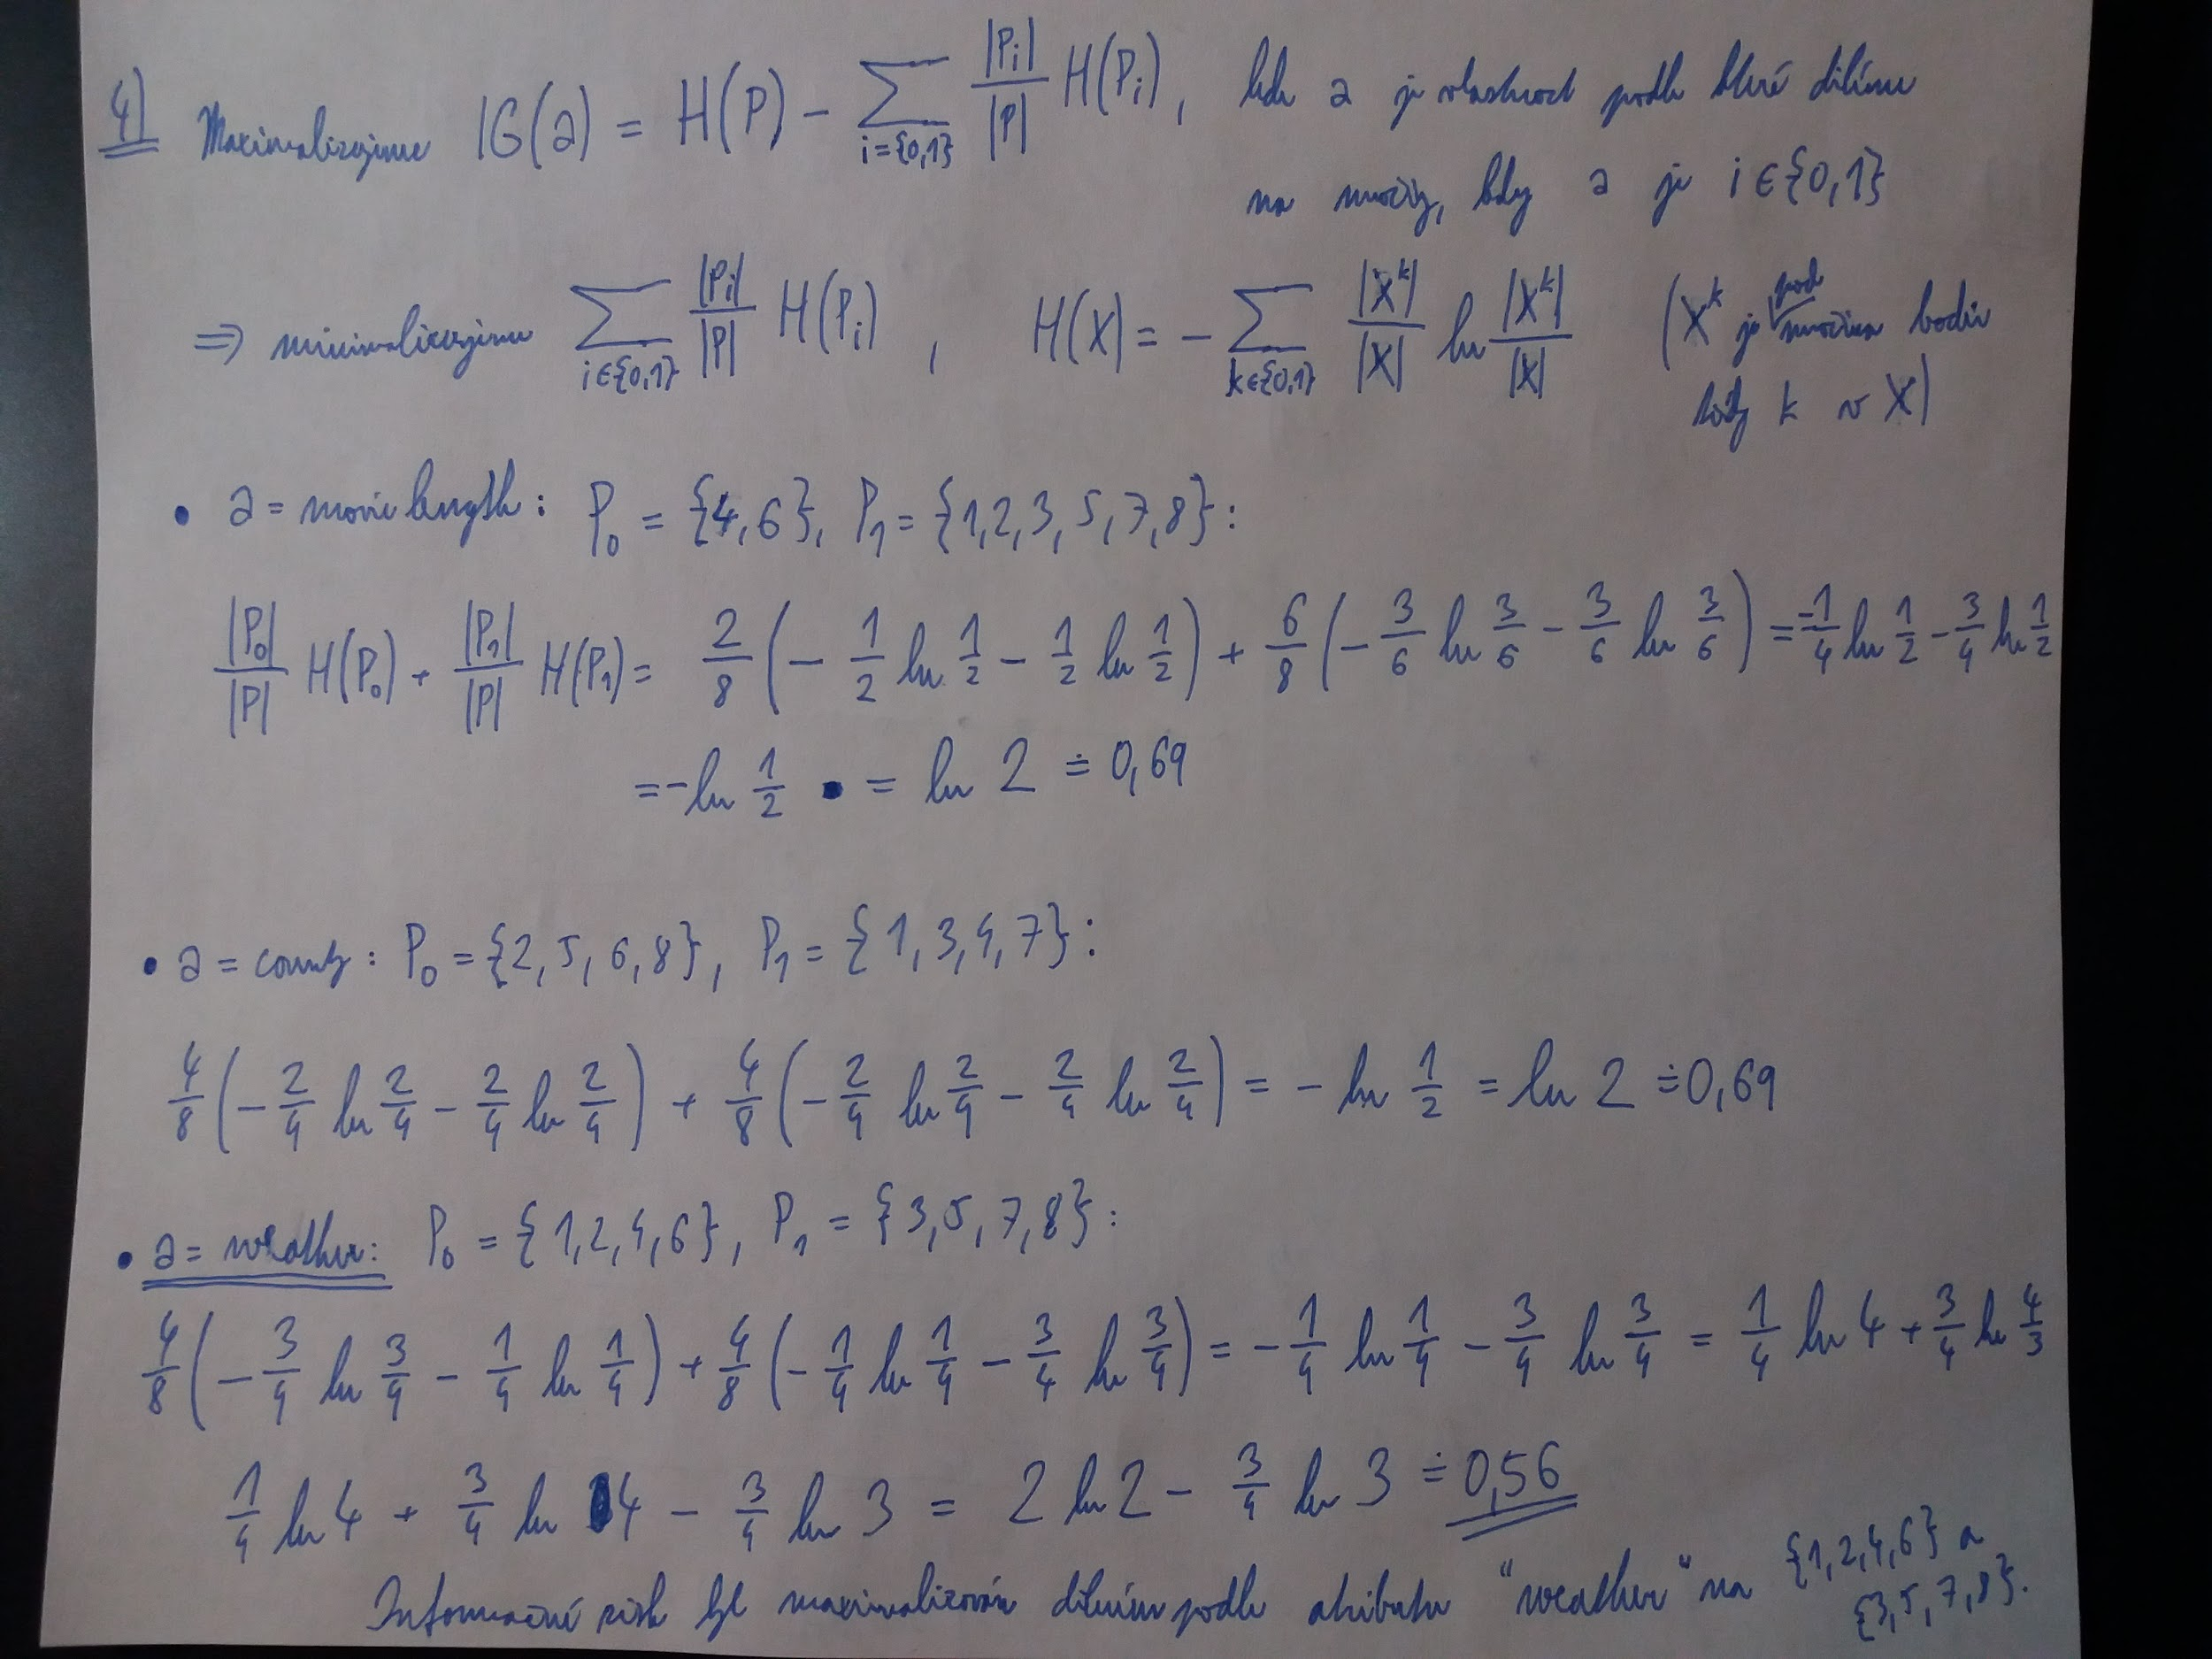 4) Maximalizujeme IG(a) = H(P) - ∑_{i={0,1}} |P_i|/|P| H(P_i), kde a je vlastnost podle které dělíme
na množiny, kdy a je i ∈ {0,1}
⇒ minimalizujeme ∑_{i∈{0,1}} |P_i|/|P| H(P_i) , H(X) = - ∑_{k∈{0,1}} |X^k|/|X| ln |X^k|/|X| (X^k je podmnožina bodů
třídy k v X)
• a = movie length: P_0 = {4,6}, P_1 = {1,2,3,5,7,8}:
|P_0|/|P| H(P_0) + |P_1|/|P| H(P_1) = 2/8 (- 1/2 ln 1/2 - 1/2 ln 1/2) + 6/8 (- 3/6 ln 3/6 - 3/6 ln 3/6) = -1/4 ln 1/2 - 3/4 ln 1/2
= -ln 1/2 = ln 2 ≐ 0,69
• a = country: P_0 = {2,5,6,8}, P_1 = {1,3,4,7}:
4/8 (- 2/4 ln 2/4 - 2/4 ln 2/4) + 4/8 (- 2/4 ln 2/4 - 2/4 ln 2/4) = - ln 1/2 = ln 2 ≐ 0,69
• a = weather: P_0 = {1,2,4,6}, P_1 = {3,5,7,8}:
4/8 (- 3/4 ln 3/4 - 1/4 ln 1/4) + 4/8 (- 1/4 ln 1/4 - 3/4 ln 3/4) = - 1/4 ln 1/4 - 3/4 ln 3/4 = 1/4 ln 4 + 3/4 ln 4/3
1/4 ln 4 + 3/4 ln 4 - 3/4 ln 3 = 2 ln 2 - 3/4 ln 3 ≐ 0,56
Informační zisk byl maximalizován dělením podle atributu "weather" na {1,2,4,6} a
{3,5,7,8}.